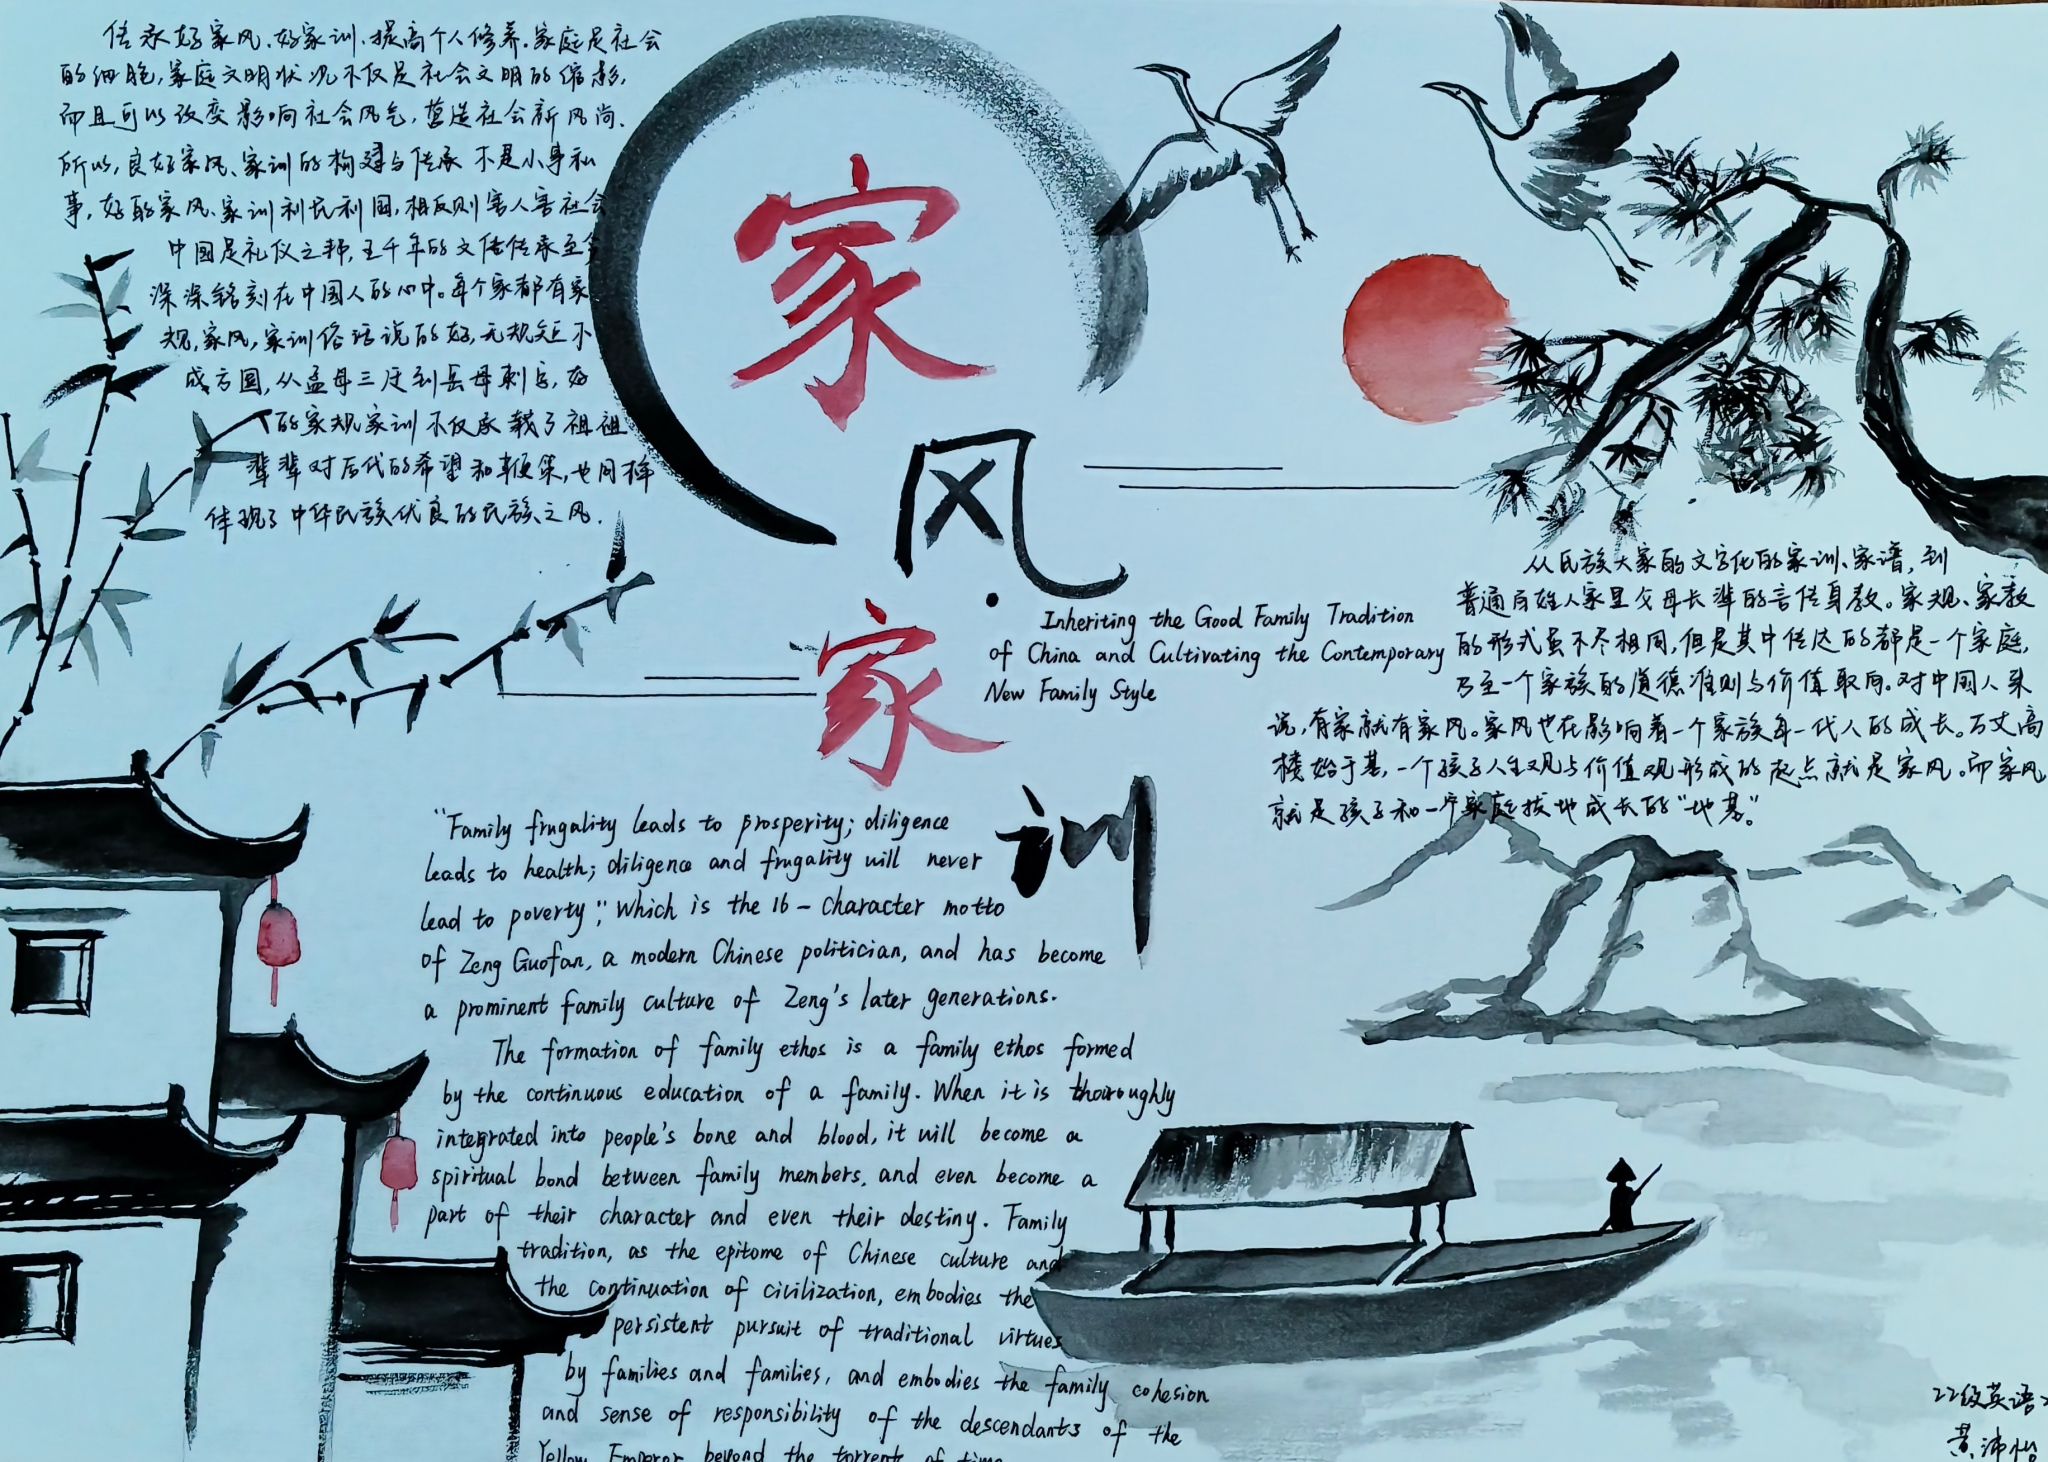 传承好家风、好家训、提高个人修养.家庭是社会
的细胞,家庭文明状况不仅是社会文明的缩影,
而且可以改变影响社会风气,营造社会新风尚.
所以,良好家风、家训的构建与传承不是小事私
事,好的家风、家训利民利国,相反则害人害社会
中国是礼仪之邦,五千年的文传传承至今
深深铭刻在中国人的心中。每个家都有家
规,家风,家训俗话说的好,无规矩不
成方圆,从孟母三迁到岳母刺字,好
的家规家训不仅承载了祖祖
辈辈对后代的希望和鞭策,也同样
体现了中华民族优良的民族之风.
家
风
家
训
Inheriting the Good Family Tradition
of China and Cultivating the Contemporary
New Family Style
从氏族大家的文字化的家训、家谱,到
普通百姓人家里父母长辈的言传身教。家规、家教
的形式虽不尽相同,但是其中传达的都是一个家庭,
乃至一个家族的道德准则与价值取向。对中国人来
说,有家就有家风。家风也在影响着一个家族每一代人的成长。万丈高
楼始于基,一个孩子人生观与价值观形成的起点就是家风。而家风
就是孩子和一个家庭拔地成长的"地基"。
"Family frugality leads to prosperity; diligence
leads to health; diligence and frugality will never
lead to poverty", Which is the 16-character motto
of Zeng Guofan, a modern Chinese politician, and has become
a prominent family culture of Zeng's later generations.
The formation of family ethos is a family ethos formed
by the continuous education of a family. When it is thoroughly
integrated into people's bone and blood, it will become a
spiritual bond between family members, and even become a
part of their character and even their destiny. Family
tradition, as the epitome of Chinese culture and
the continuation of civilization, embodies the
persistent pursuit of traditional virtues
by families and families, and embodies the family cohesion
and sense of responsibility of the descendants of the
Yellow Emperor beyond the torrent of time
22级英语
黄沛怡